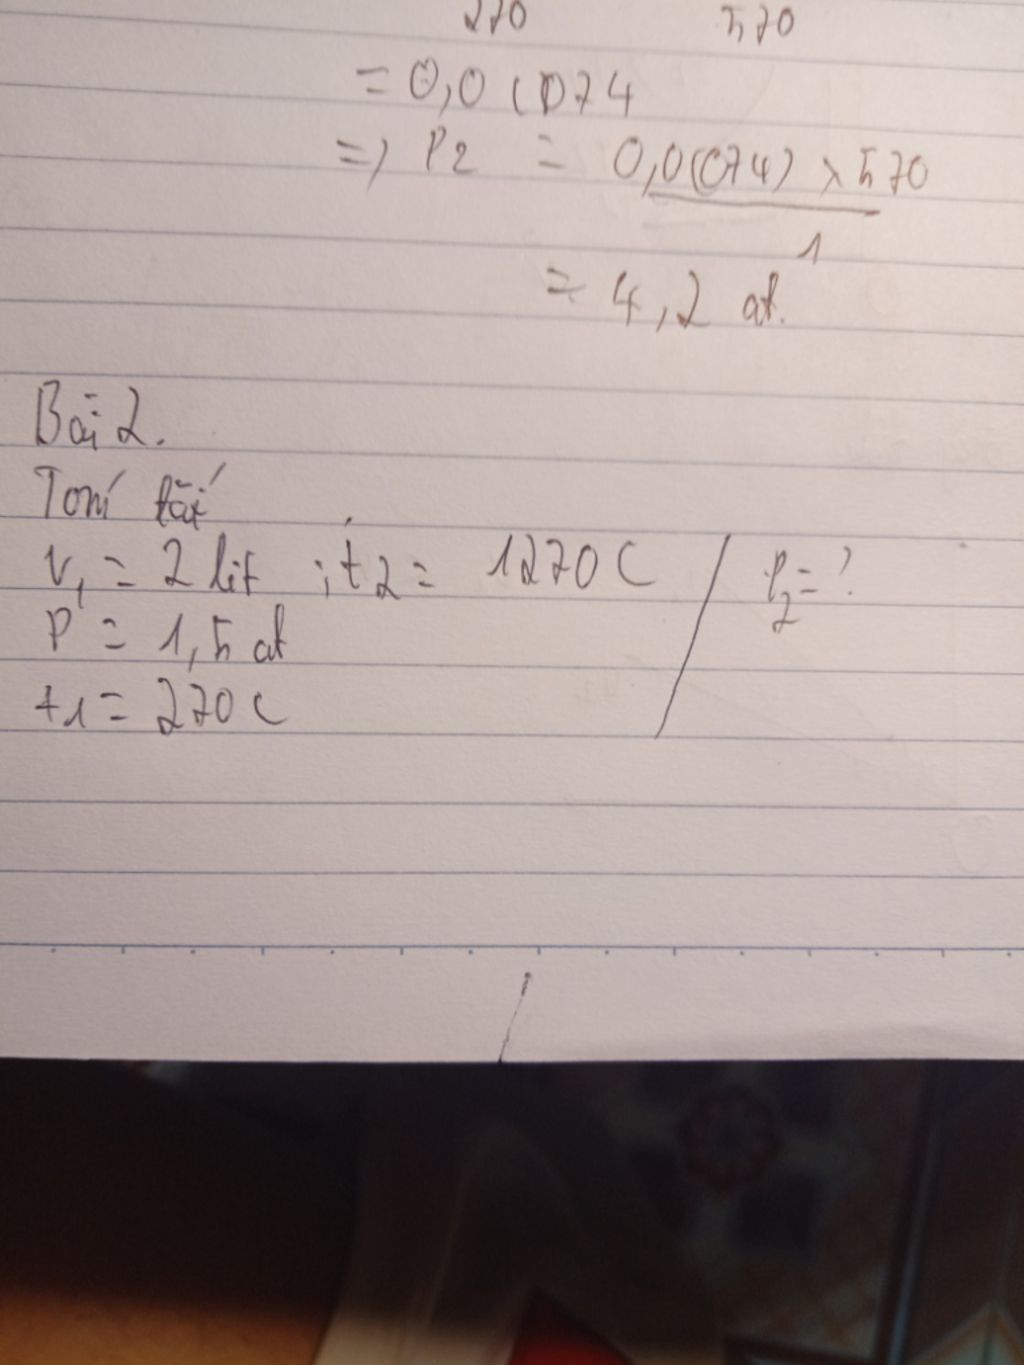 270 570
= 0,0(074
=) P2 = 0,0(074) x 570
1
= 4,2 at.
Bài 2.
Tóm tắt
V1 = 2 lit ; t2 = 1270C / P2 = ?
P = 1,5 at
t1 = 270C